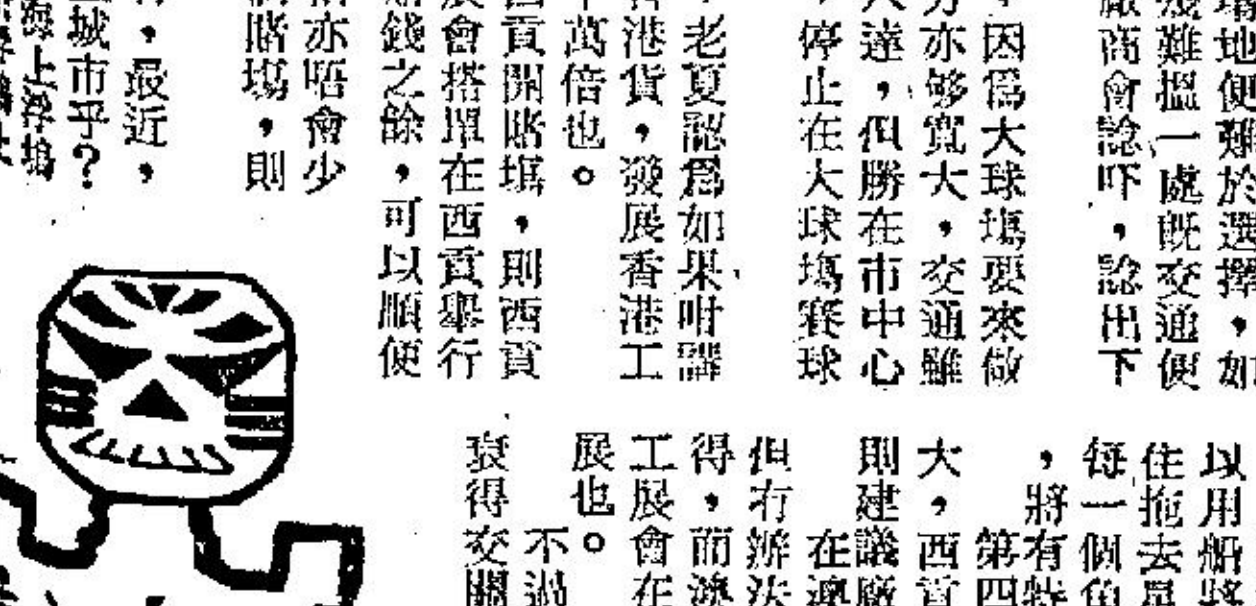 塲地便難於選擇，如
幾難搵一處旣交通便
廠商會諗吓，諗出下
因爲大球塲要來做
方亦够寬大，交通雖
人達，但勝在市中心
，停止在大球塲賽球
，老夏認爲如果咁講
香港貨，發展香港工
萬倍也。
西貢開賭塲，則西貢
展會搭單在西貢舉行
錢之餘，可以順便
亦唔會少
賭塲，則
，最近，
城市乎？
海上浮塢
以用船將
住拖去
每一個角
，將有
第四
大，西貢
則建議廠
在
但冇辦法
得，而
工展會在
展也。
不過
衰得交關